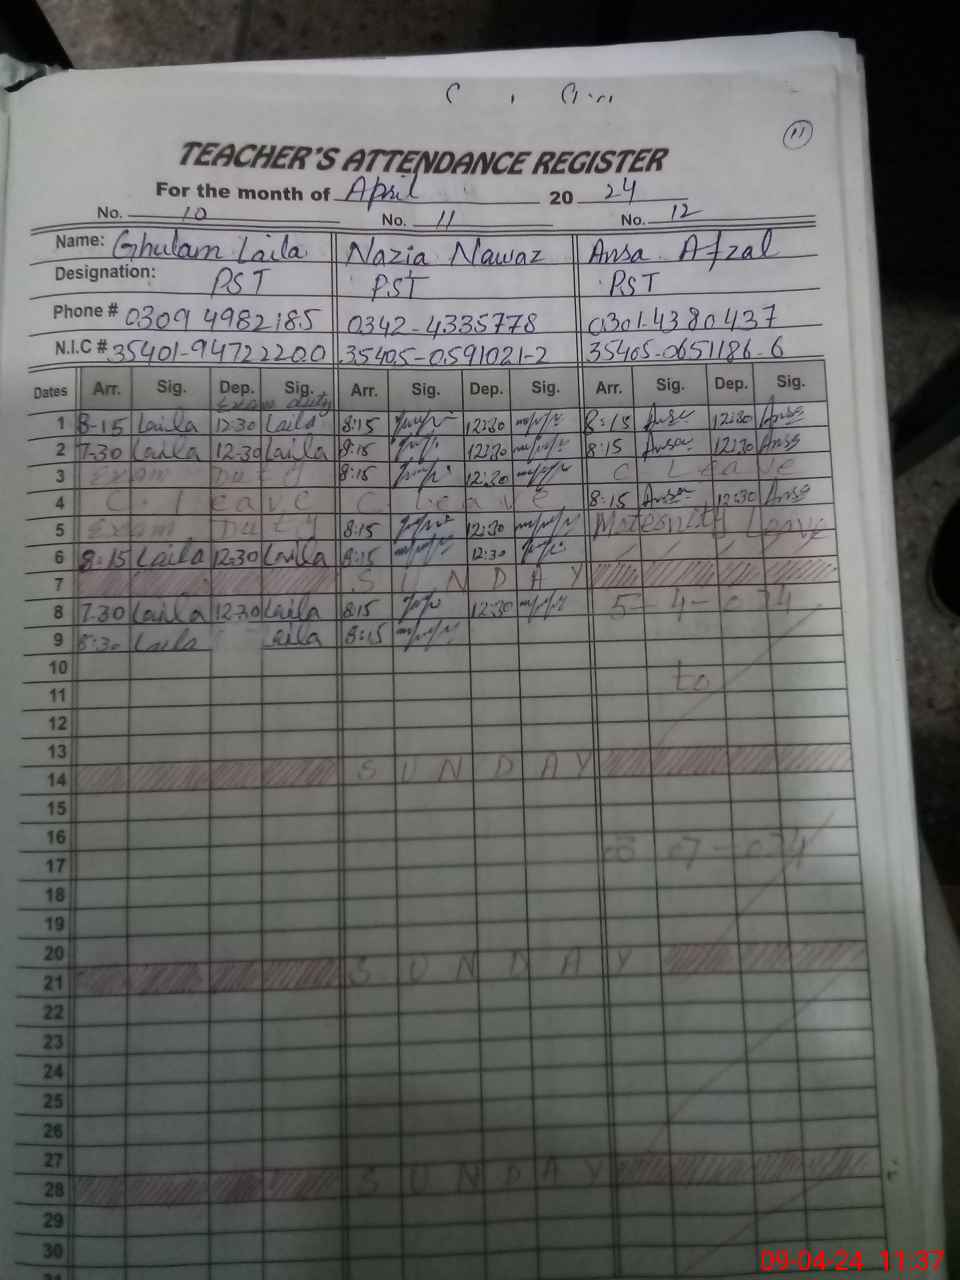 11
TEACHER'S ATTENDANCE REGISTER
For the month of April 20 24
No. 10 No. 11 No. 12
Name: Ghulam Laila Nazia Nawaz Ansa Afzal
Designation: PST PST PST
Phone # 0309 4982185 0342-4335778 0301-4380437
N.I.C # 35401-94722200 35405-0591021-2 35405-0651186-6
Dates Arr. Sig. Dep. Sig. Arr. Sig. Dep. Sig. Arr. Sig. Dep. Sig.
Exam duty
1 8-15 Laila 12:30 Laila 8:15 12:30 8:15 Ansa 12:30 Ansa
2 7.30 Laila 12-30 Laila 8:15 12:30 8:15 Ansa 12:30 Ansa
3 Exam Duty 8:15 12:30 C Leave
4 C. Leave C Leave 8:15 Ansa 12:30 Ansa
5 Exam Duty 8:15 12:30 Maternity Leave
6 8:15 Laila 12-30 Laila 8:15 12:30
7 SUNDAY
8 7.30 Laila 12-30 Laila 8:15 12:30 5-4-
9 8:30 Laila Laila 8:15
10
11 to
12
13
14 SUNDAY
15
16
17 07
18
19
20
21 SUNDAY
22
23
24
25
26
27
28 SUNDAY
29
30
09-04-24 11:37